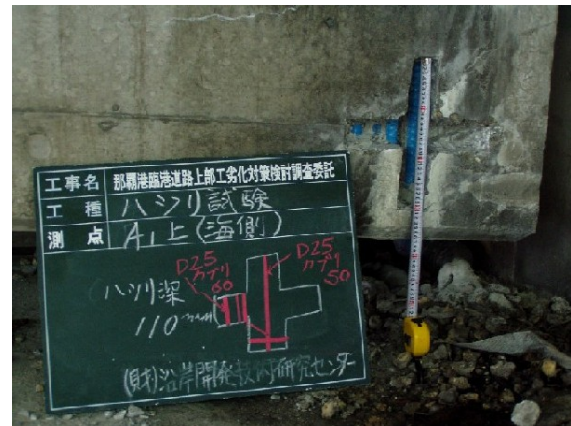 工事名 那覇港臨港道路上部工劣化対策検討調査委託
工種 ハツリ試験
測点 A1上(海側)
D25
カブリ
60
D25
カブリ
50
ハツリ深
110mm
(財)沿岸開発技術研究センター